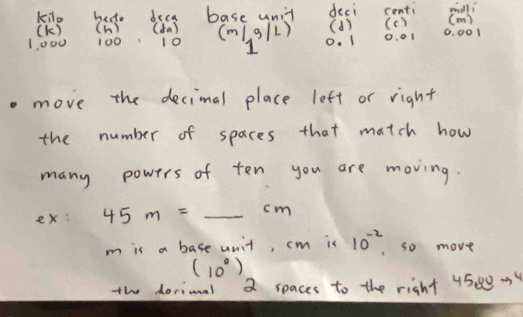 kilo hecto deca base unit deci centi milli
(k) (h) (da) (m/g/L) (d) (c) (m)
1,000 100 10 1 0.1 0.01 0.001
• move the decimal place left or right
the number of spaces that match how
many powers of ten you are moving.
ex: 45 m = ___ cm
m is a base unit, cm is 10⁻², so move
(10⁰)
the decimal 2 spaces to the right 45.00 → 4